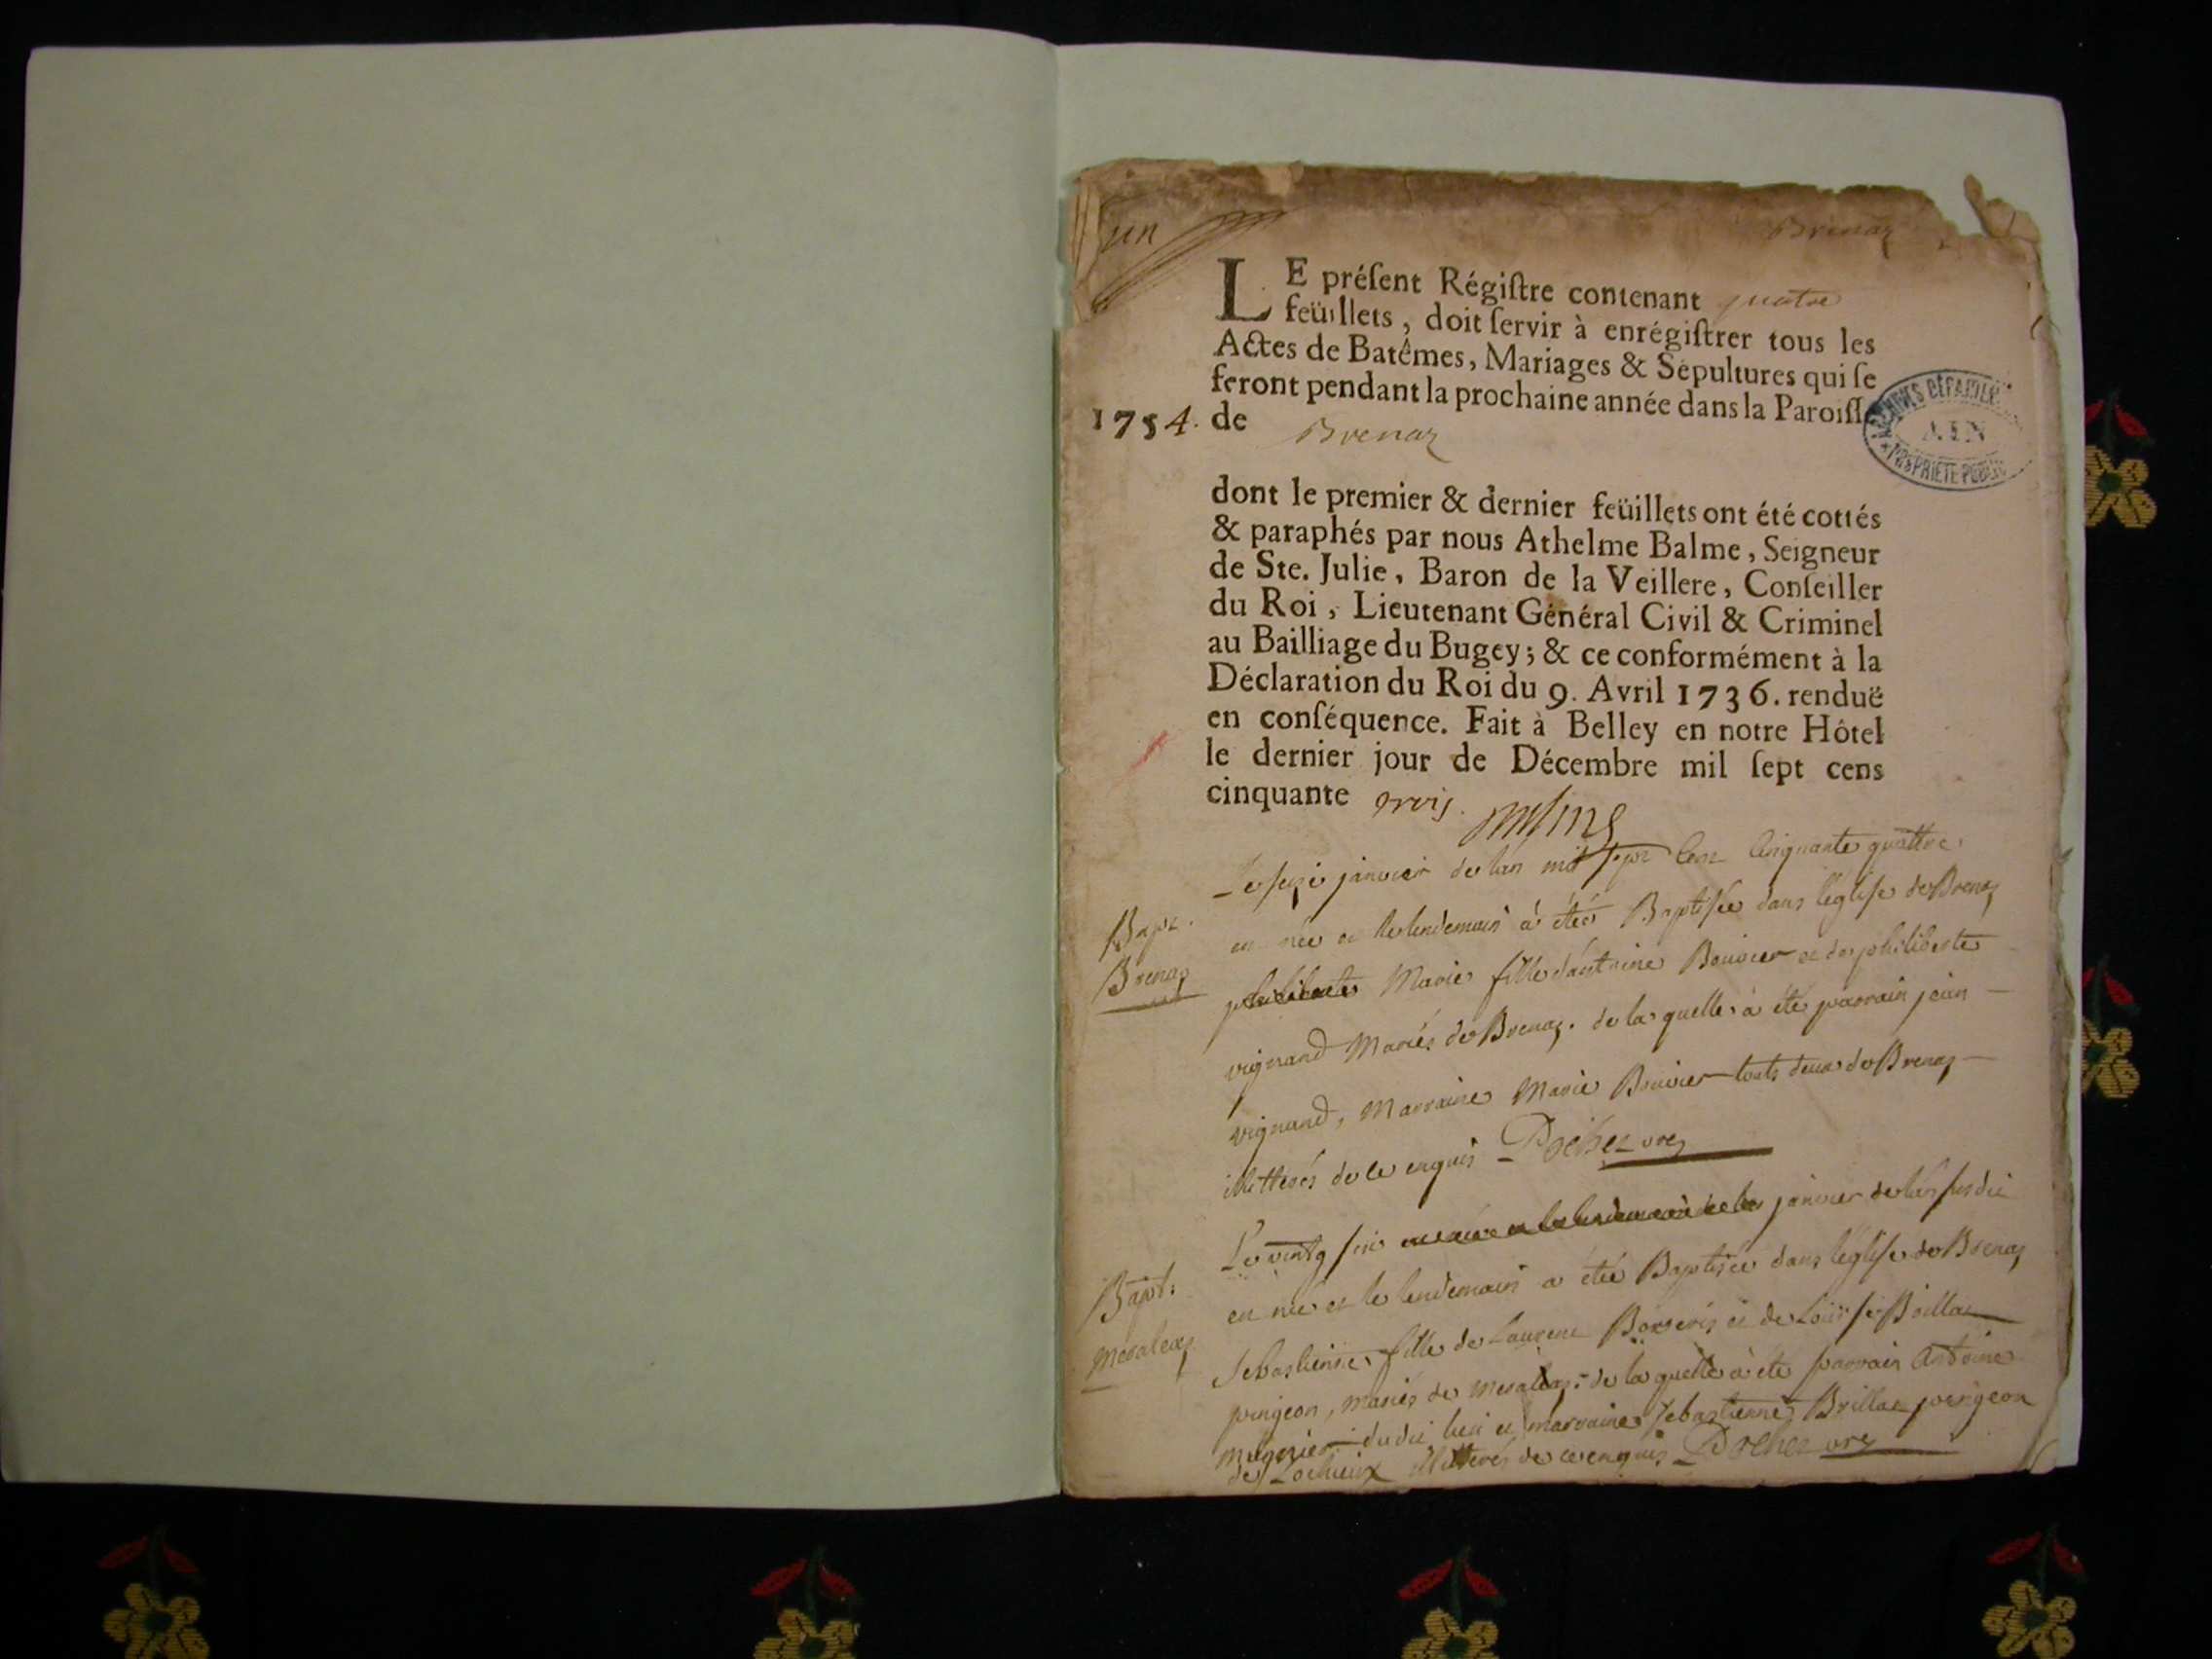 un
Brenaz
LE préſent Régiſtre contenant quatre
feüillets, doit ſervir à enrégiſtrer tous les
Actes de Batêmes, Mariages & Sépultures qui ſe
feront pendant la prochaine année dans la Paroiſſe
1754. de Brenaz
ARCHIVES DÉPARTEM
AIN
PROPRIÉTÉ PUBLI
dont le premier & dernier feüillets ont été cottés
& paraphés par nous Athelme Balme, Seigneur
de Ste. Julie, Baron de la Veillere, Conſeiller
du Roi, Lieutenant Général Civil & Criminel
au Bailliage du Bugey; & ce conformément à la
Déclaration du Roi du 9. Avril 1736. renduë
en conſéquence. Fait à Belley en notre Hôtel
le dernier jour de Décembre mil ſept cens
cinquante trois.
Le seize janvier de lan mil sept cent cinquante quattre
Bapt.
Brenaz
est née et le lendemain à étée Baptisée dans l'église de Brenaz
Marie fille d'antoine Bouvier et de philiberte
vignand Mariés de Brenaz. de la quelle à été parrain jean
vignand, Marraine Marie Bouvier touts deux de Brenaz
illitterés de ce enquis Rochez
Le vintg janvier de lan susdit
Bapt:
est née et le lendemain a étée Baptisée dans l'église de Brenaz
Sebastienne fille de Laurent et de Louise Brillat
pingeon, mariés de de la quelle à été parrain Antoine
dudit lieu et marraine Sebastienne Brillat pingeon
de Lochieux illitterés de ce enquis Rochez